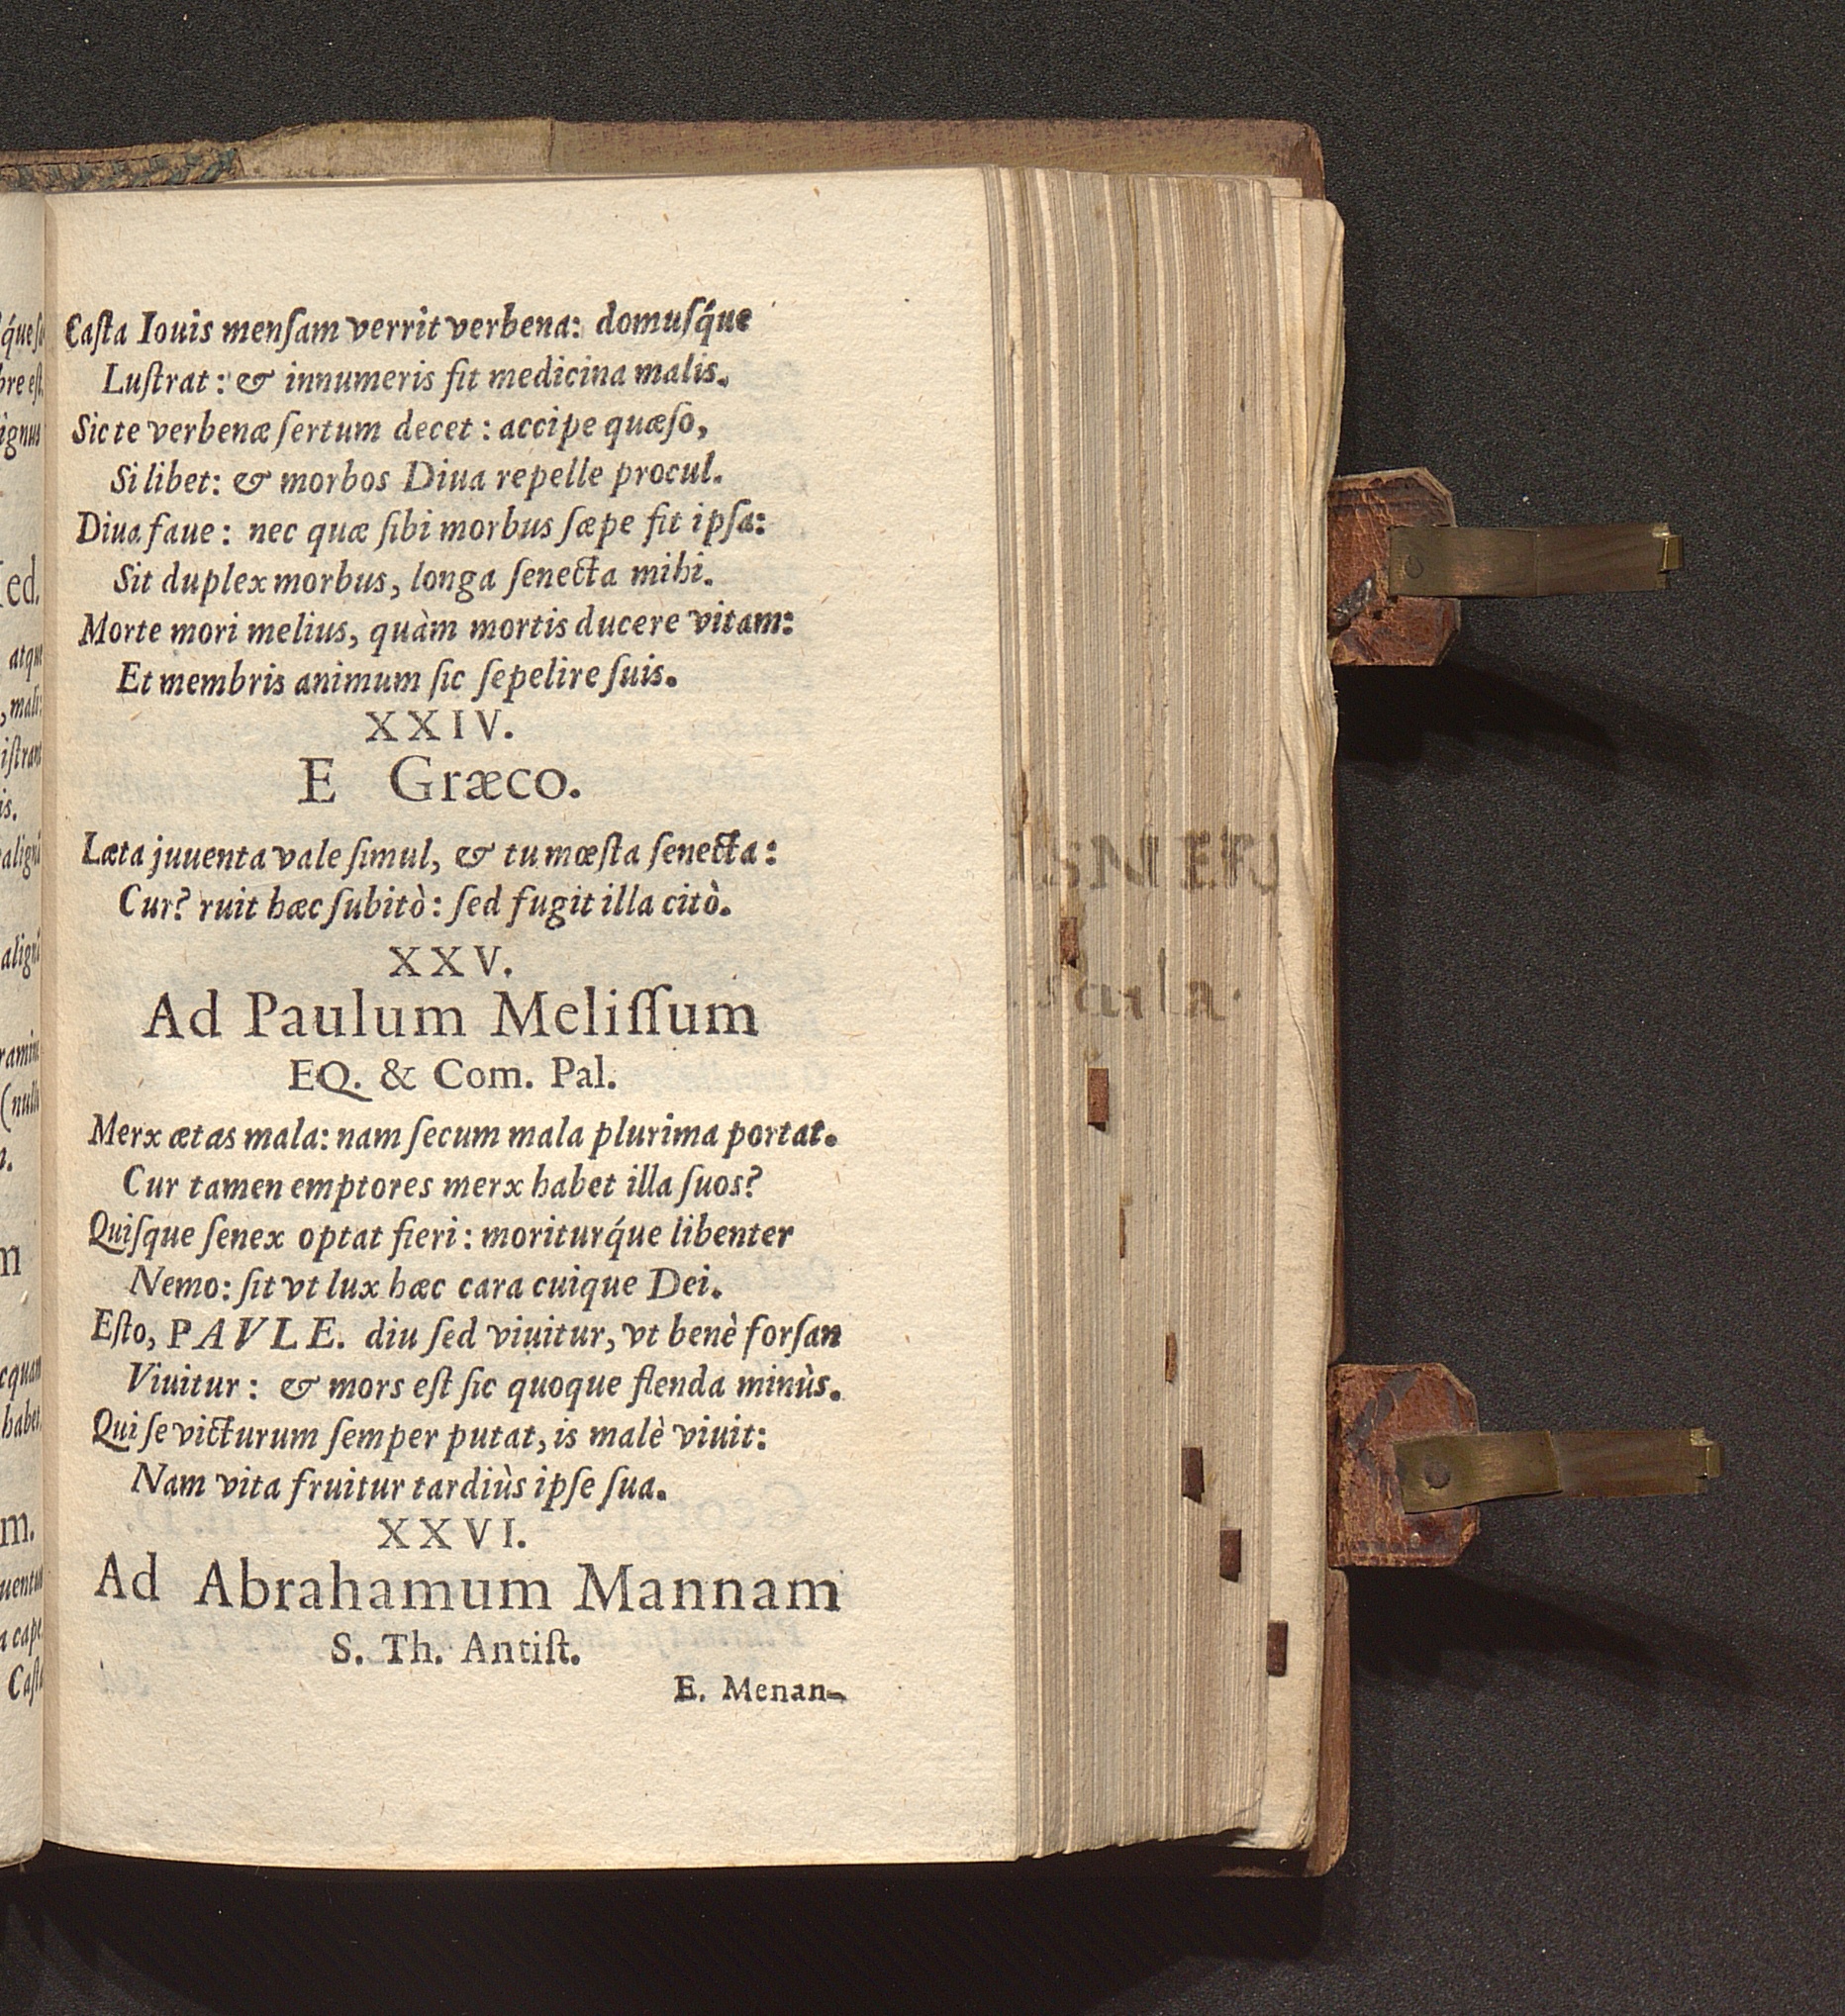 Caſta Iouis menſam verrit verbena: domuſq́ue
Luſtrat: & innumeris fit medicina malis.
Sic te verbenæ ſertum decet: accipe quæſo,
Si libet: & morbos Diua repelle procul.
Diua faue: nec quæ ſibi morbus ſæpe fit ipſa:
Sit duplex morbus, longa ſenecta mihi.
Morte mori melius, quàm mortis ducere vitam:
Et membris animum ſic ſepelire ſuis.
XXIV.
E Græco.
Læta juuenta vale ſimul, & tu mœſta ſenecta:
Cur? ruit hæc ſubitò: ſed fugit illa citò.
XXV.
Ad Paulum Meliſſum
EQ. & Com. Pal.
Merx ætas mala: nam ſecum mala plurima portat.
Cur tamen emptores merx habet illa ſuos?
Quiſque ſenex optat fieri: moriturq́ue libenter
Nemo: ſit vt lux hæc cara cuique Dei.
Eſto, PAVLE. diu ſed viuitur, vt benè forſan
Viuitur: & mors eſt ſic quoque flenda minùs.
Qui ſe victurum ſemper putat, is malè viuit:
Nam vita fruitur tardiùs ipſe ſua.
XXVI.
Ad Abrahamum Mannam
S. Th. Antiſt.
E. Menan-